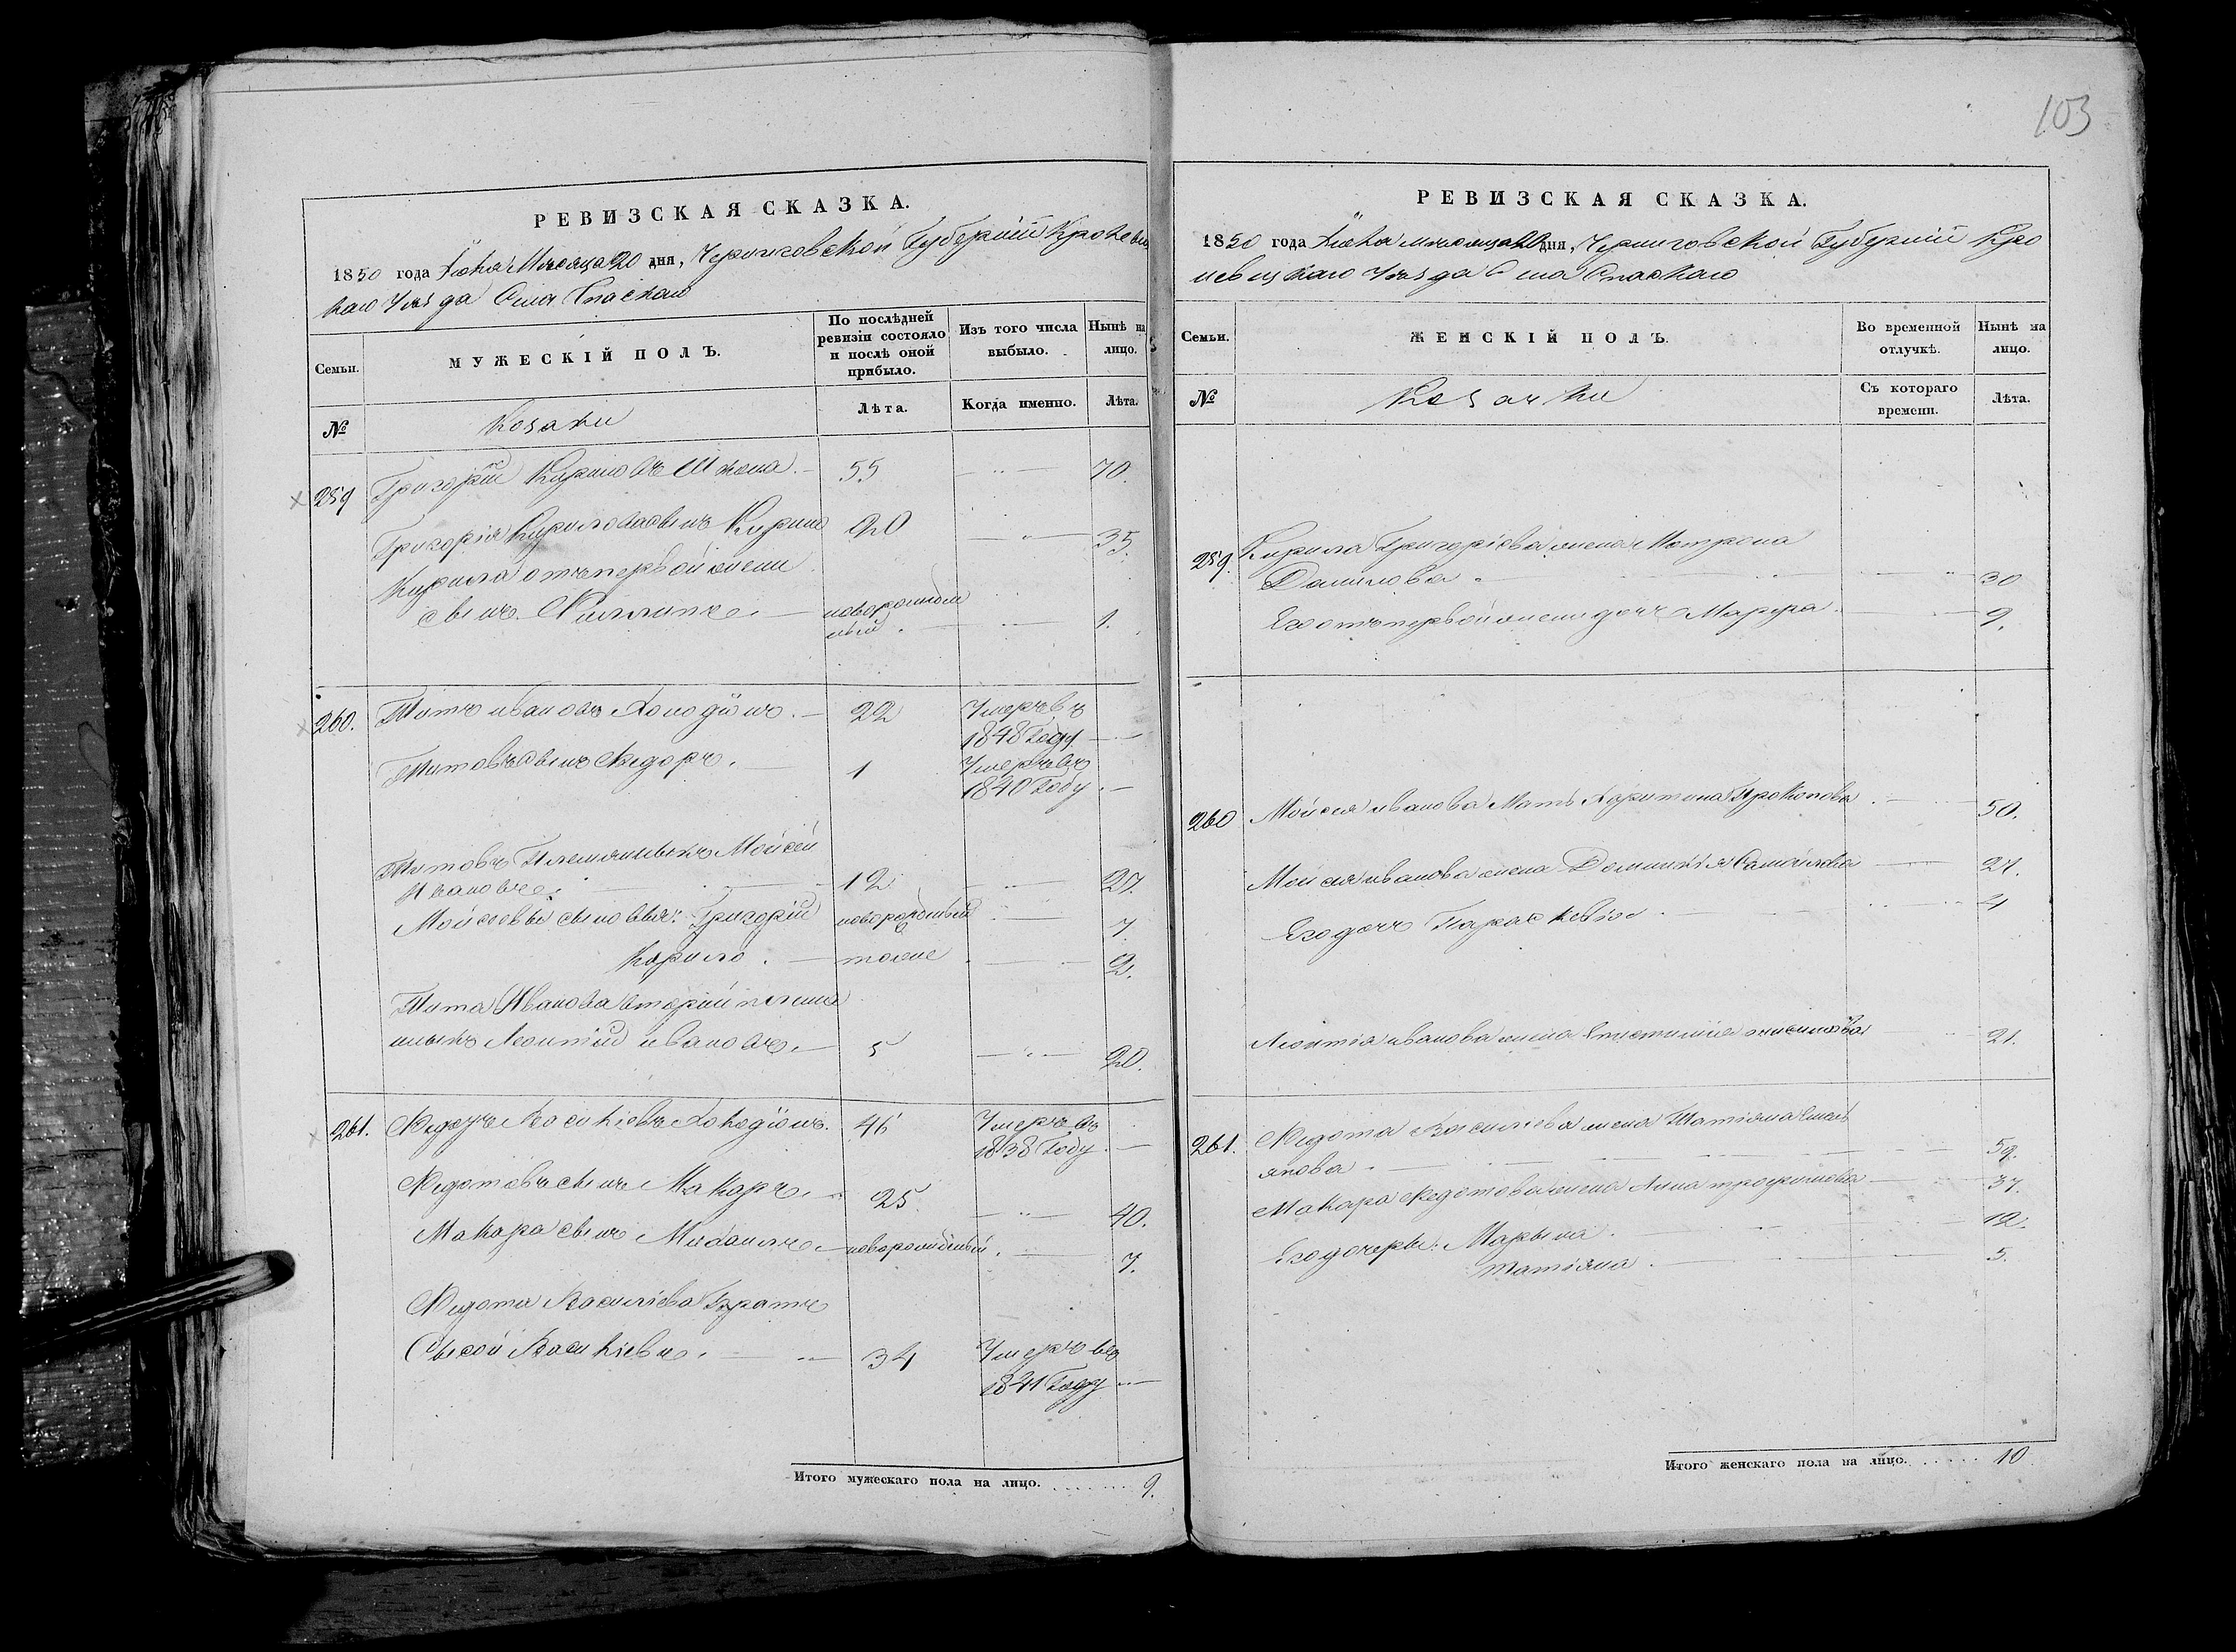 103
РЕВИЗСКАЯ СКАЗКА.
1850 года Мѣсяца 20 дня, Черниговской Губерніи Кролевец
каго Уѣзда Села Спаскаго
Семьи.
МУЖЕСКІЙ ПОЛЪ.
По послѣдней ревизіи состояло и послѣ оной прибыло.
Изъ того числа выбыло.
Нынѣ на лицо.
№
Козаки
Лѣта.
Когда именно.
Лѣта.
259 Григорій Кирилов 55 70.
Григорія Кирилова сынъ Кирило 20 35.
Кирила отъ первой жены
сынъ Филипъ новорожден
ный 1.
260. Титъ Ивановъ 22 Умеръ въ
1848 Году
Титовъ сынъ Федоръ. 1 Умеръ въ
1840 Году
Титовъ Племянникъ Мойсей
Ивановъ 12 27.
Мойсеевы сыновья: Григорій новорожденный 7.
Кирило. тоже 2.
Тита Иванова вторый племя
нникъ Леонтій Ивановъ 5 20.
261. Федотъ 46 Умеръ въ
1838 Году
Федотовъ сынъ Макаръ 25 40.
Макара сынъ новорожденный. 7.
Федота Василіева Братъ
Сысой 34 Умеръ въ
1841 Году
Итого мужескаго пола на лицо. 9.
РЕВИЗСКАЯ СКАЗКА.
1850 года мѣсяца 20 дня, Черниговской Губерніи Кро
левецкаго Уѣзда Села Спаскаго
Семьи.
ЖЕНСКІЙ ПОЛЪ.
Во временной отлучкѣ.
Нынѣ на лицо.
№
Козачки
Съ котораго времени.
Лѣта.
259. Кирила Григоріева жена Матрона
Данилова 30
Его отъ первой жены дочь Марфа 9.
260 Мойсея Иванова Мать Харитина Прокопова 50.
Мойсея Иванова жена Домникія 27.
Его дочь Параскевія 4
Леонтія Иванова жена 21.
261. Федота Василіева жена Татіяна Емель
янова 59.
Макара Федотова жена Анна Трофимова 37.
Его дочеры: Марына. 12.
Татіяна. 5.
Итого женскаго пола на лицо. 10